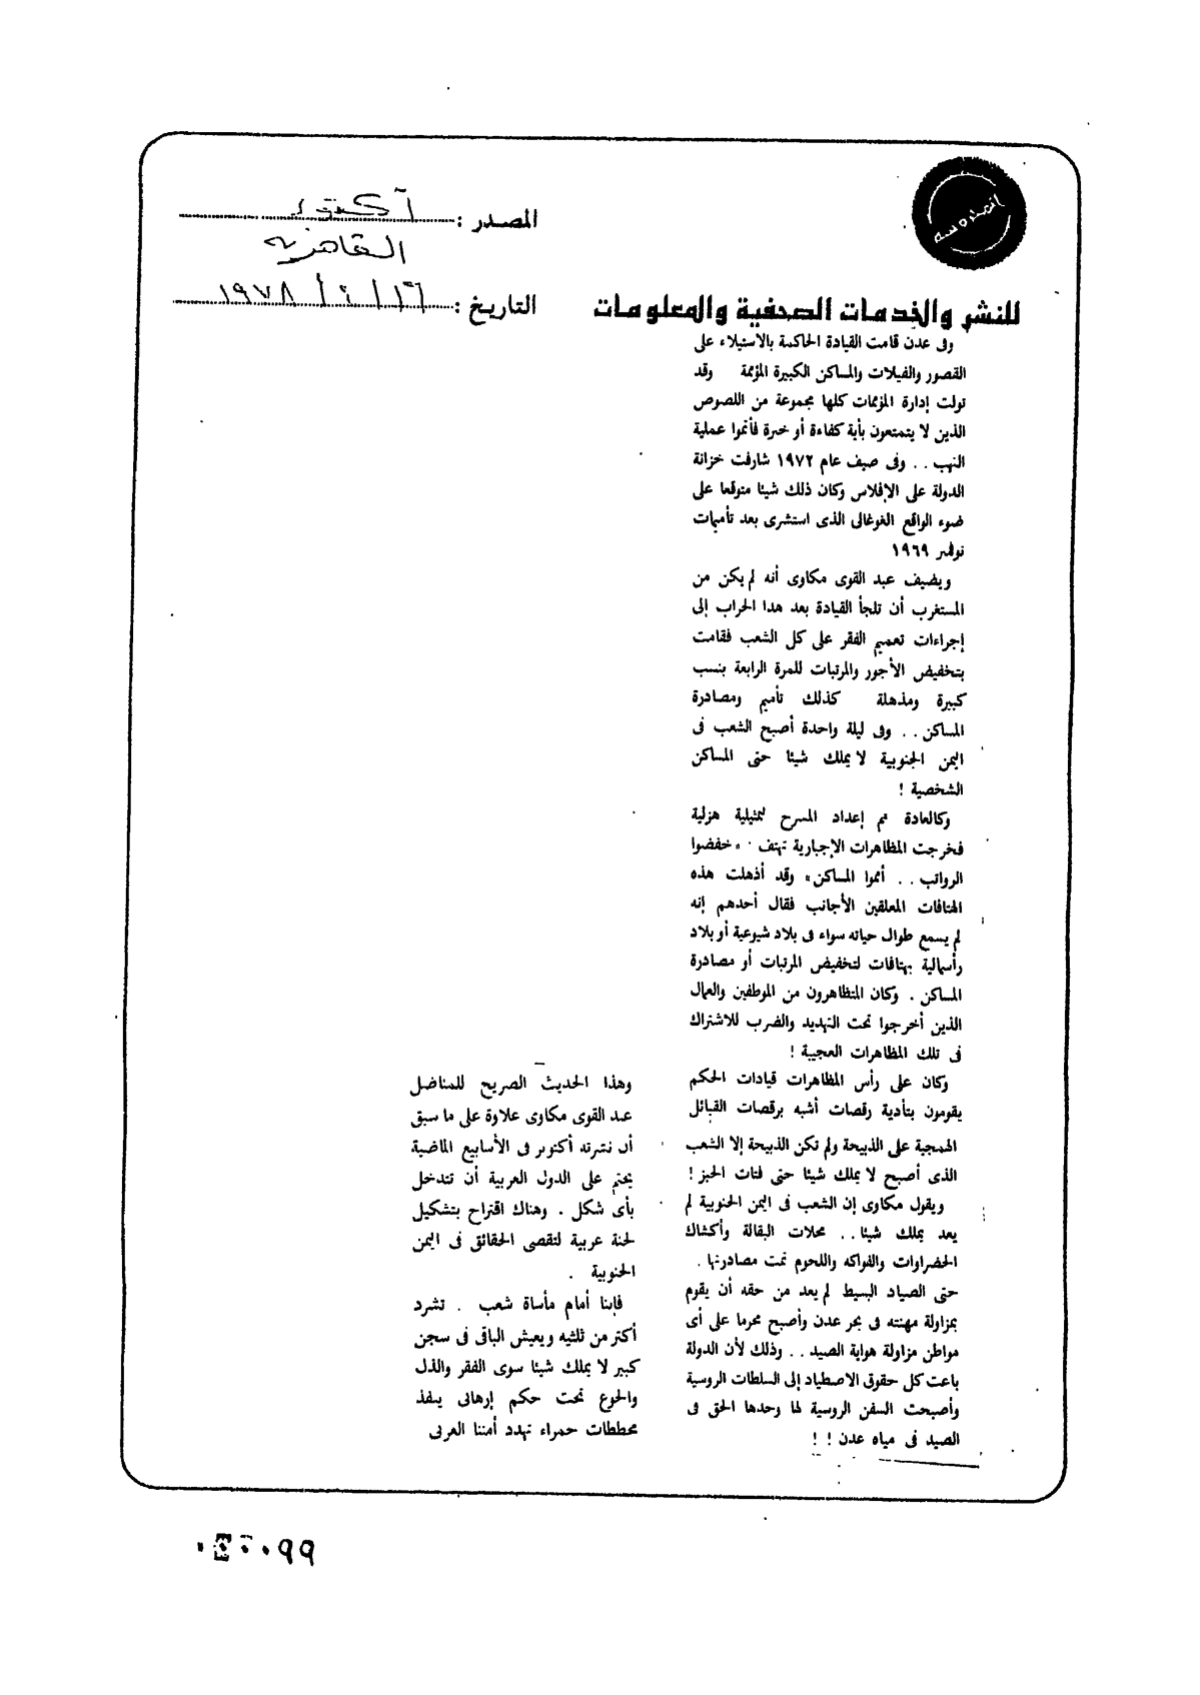 المحروسة
المصدر : أكتوبر
القاهرية
التاريخ : ١٦ / ٤ / ١٩٧٨
للنشر والخدمات الصحفية والمعلومات
وفى عدن قامت القيادة الحاكمة بالاستيلاء على
القصور والفيلات والمساكن الكبيرة المؤممة وقد
تولت إدارة المؤممات كلها مجموعة من اللصوص
الذين لا يتمتعون بأية كفاءة أو خبرة فأتموا عملية
النهب . . وفى صيف عام ١٩٧٢ شارفت خزانة
الدولة على الإفلاس وكان ذلك شيئا متوقعا على
ضوء الواقع الغوغائى الذى استشرى بعد تأميمات
نوفمبر ١٩٦٩
ويضيف عبد القوى مكاوى أنه لم يكن من
المستغرب أن تلجأ القيادة بعد هدا الخراب إلى
إجراءات تعميم الفقر على كل الشعب فقامت
بتخفيض الأجور والمرتبات للمرة الرابعة بنسب
كبيرة ومذهلة كذلك تأميم ومصادرة
المساكن . . وفى ليلة واحدة أصبح الشعب فى
اليمن الجنوبية لا يملك شيئا حتى المساكن
الشخصية !
وكالعادة تم إعداد المسرح لتمثيلية هزلية
فخرجت المظاهرات الإجبارية تهتف « خفضوا
الرواتب . . أمموا المساكن » وقد أذهلت هذه
الهتافات المعلقين الأجانب فقال أحدهم إنه
لم يسمع طوال حياته سواء فى بلاد شيوعية أو بلاد
رأسمالية بهتافات لتخفيض المرتبات أو مصادرة
المساكن . وكان المتظاهرون من الموظفين والعمال
الذين أخرجوا تحت التهديد والضرب للاشتراك
فى تلك المظاهرات العجيبة !
وكان على رأس المظاهرات قيادات الحكم
يقومون بتأدية رقصات أشبه برقصات القبائل
الهمجية على الذبيحة ولم تكن الذبيحة إلا الشعب
الذى أصبح لا يملك شيئا حتى فتات الخبز !
ويقول مكاوى إن الشعب فى اليمن الجنوبية لم
يعد يملك شيئا . . محلات البقالة وأكشاك
الخضراوات والفواكه واللحوم تمت مصادرتها .
حتى الصياد البسيط لم يعد من حقه أن يقوم
بمزاولة مهنته فى بحر عدن وأصبح محرما على أى
مواطن مزاولة هواية الصيد . . وذلك لأن الدولة
باعت كل حقوق الاصطياد إلى السلطات الروسية
وأصبحت السفن الروسية لها وحدها الحق فى
الصيد فى مياه عدن ! !
وهذا الحديث الصريح للمناضل
عبد القوى مكاوى علاوة على ما سبق
أن نشرته أكتوبر فى الأسابيع الماضية
يحتم على الدول العربية أن تتدخل
بأى شكل . وهناك اقتراح بتشكيل
لجنة عربية لتقصى الحقائق فى اليمن
الجنوبية .
فإننا أمام مأساة شعب . تشرد
أكثر من ثلثيه ويعيش الباقى فى سجن
كبير لا يملك شيئا سوى الفقر والذل
والجوع تحت حكم إرهابى ينفذ
مخططات حمراء تهدد أمننا العربى